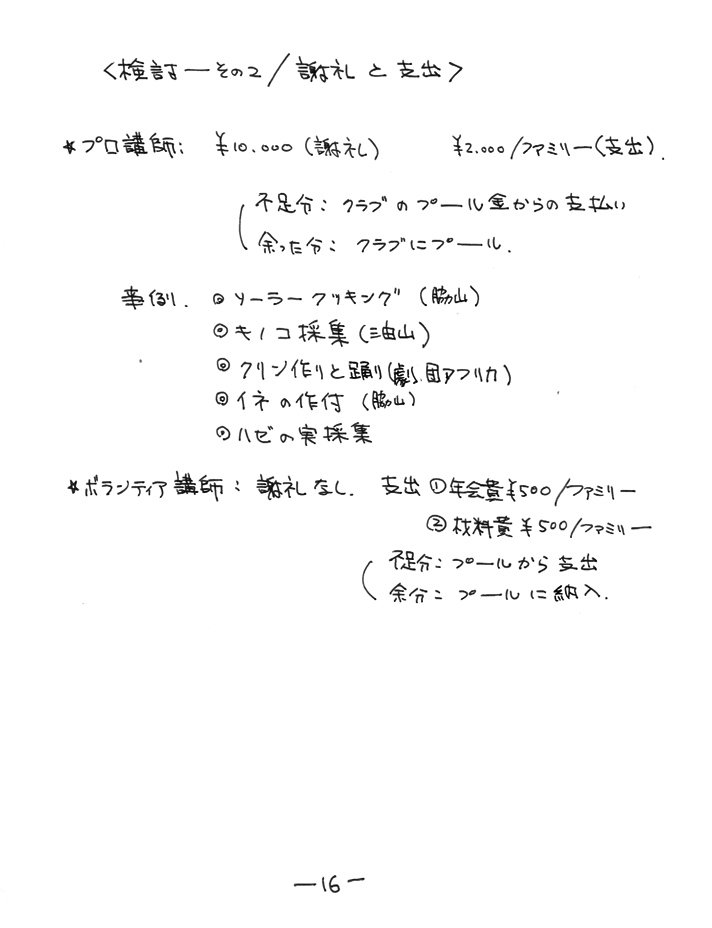 〈検討ーその2／謝礼と支出〉
★プロ講師： ¥10.000（謝礼） ¥2.000／ファミリー（支出）.
不足分：クラブのプール金からの支払い
余った分：クラブにプール.
事例. ◎ソーラークッキング（脇山）
◎キノコ採集（油山）
◎クリン作りと踊り（劇団アフリカ）
◎イネの作付（脇山）
◎ハゼの実採集
★ボランティア講師：謝礼なし. 支出 ①年会費¥500／ファミリー
②材料費¥500／ファミリー
不足分：プールから支出
余分：プールに納入.
ー16ー